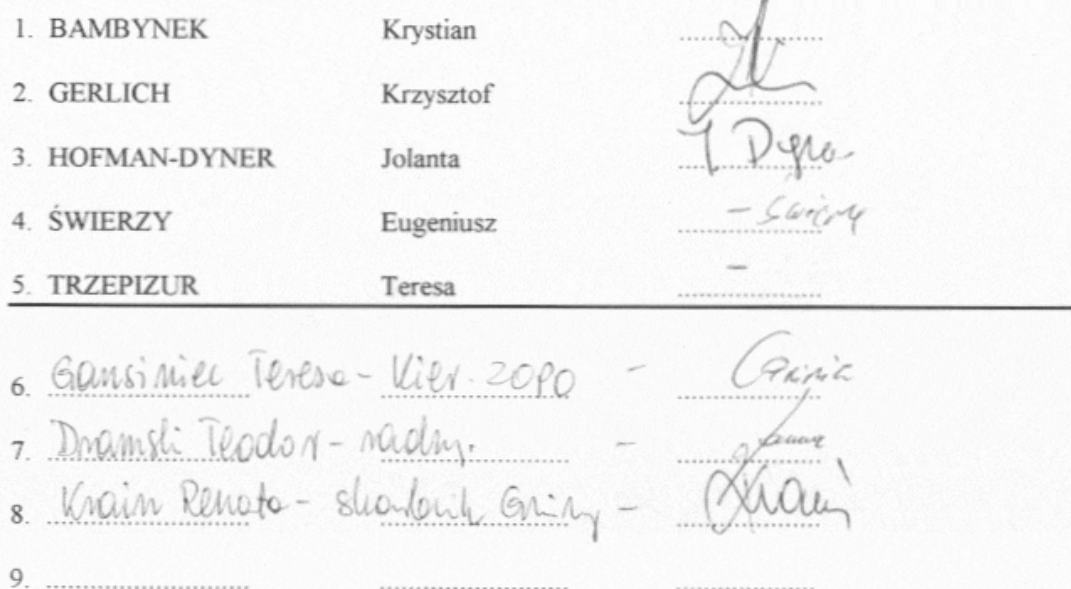 1. BAMBYNEK Krystian
2. GERLICH Krzysztof
3. HOFMAN-DYNER Jolanta J Dyner
4. ŚWIERZY Eugeniusz - Świerzy
5. TRZEPIZUR Teresa -
6. Gansiniec Teresa - Kier. ZOPO -
7. Dramski Teodor - radny. -
8. Krain Renata - skarbnik Gminy - RKrain
9.